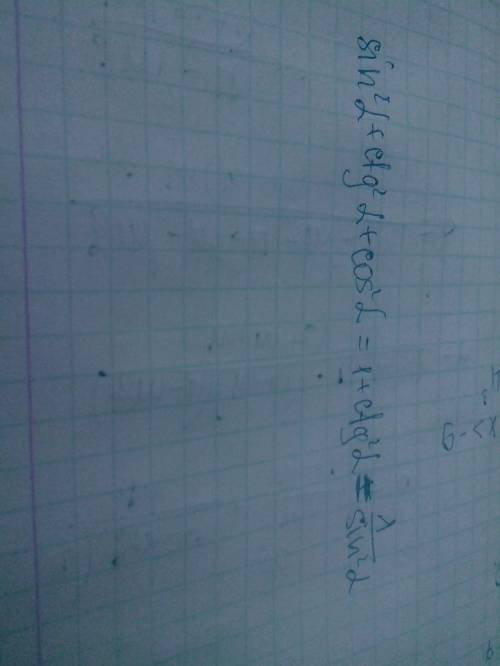 sin²α + ctg²α + cos²α = 1 + ctg²α = 1/sin²α